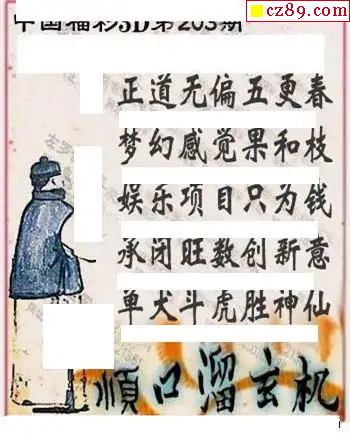 cz89.com
中国福彩3D第203期
正道无偏五更春
梦幻感觉果和枝
娱乐项目只为钱
承闭旺数创新意
单犬斗虎胜神仙
顺口溜玄机